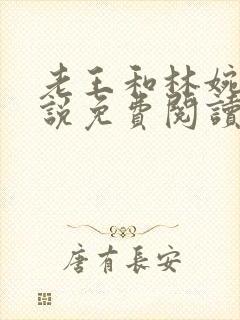 老王和林婉
說免費閱讀
唐有長安